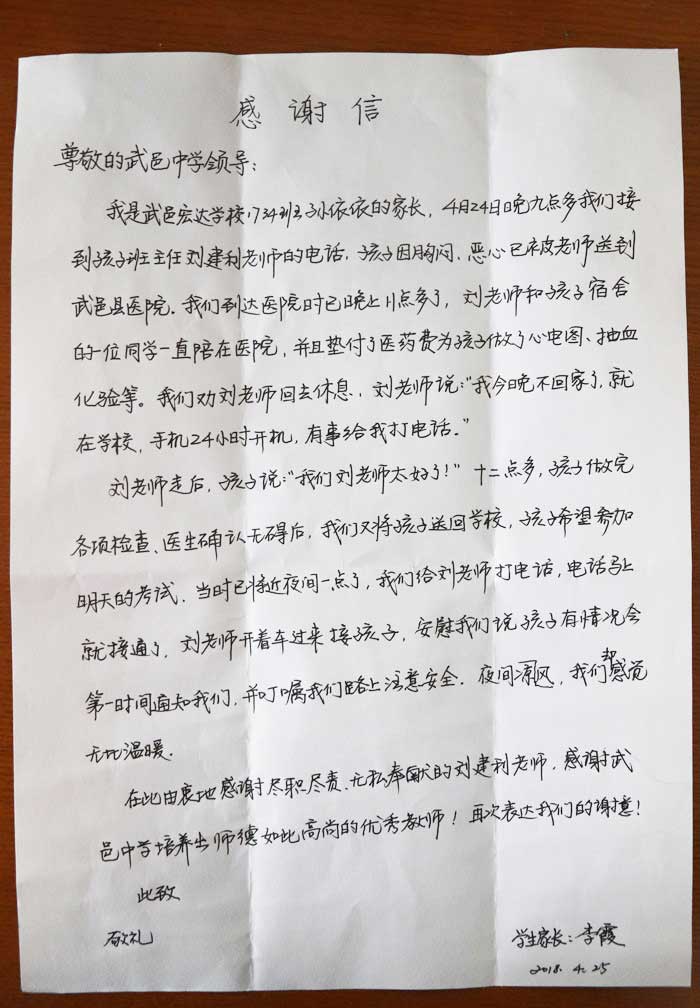 感谢信
尊敬的武邑中学领导：
我是武邑宏达学校1734班孙依依的家长，4月24日晚九点多我们接
到孩子班主任刘建利老师的电话，孩子因胸闷、恶心已被老师送到
武邑县医院。我们到达医院时已晚上11点多了，刘老师和孩子宿舍
的一位同学一直陪在医院，并且垫付了医药费为孩子做了心电图、抽血
化验等。我们劝刘老师回去休息，刘老师说：“我今晚不回家了，就
在学校，手机24小时开机，有事给我打电话。”
刘老师走后，孩子说：“我们刘老师太好了！”十二点多，孩子做完
各项检查、医生确认无碍后，我们又将孩子送回学校，孩子希望参加
明天的考试。当时已将近夜间一点了，我们给刘老师打电话，电话马上
就接通了，刘老师开着车过来接孩子，安慰我们说孩子有情况会
第一时间通知我们，并叮嘱我们路上注意安全。夜间凉风，我们却感觉
无比温暖。
在此由衷地感谢尽职尽责、无私奉献的刘建利老师，感谢武
邑中学培养出师德如此高尚的优秀教师！再次表达我们的谢意！
此致
敬礼
学生家长：李霞
2018.4.25